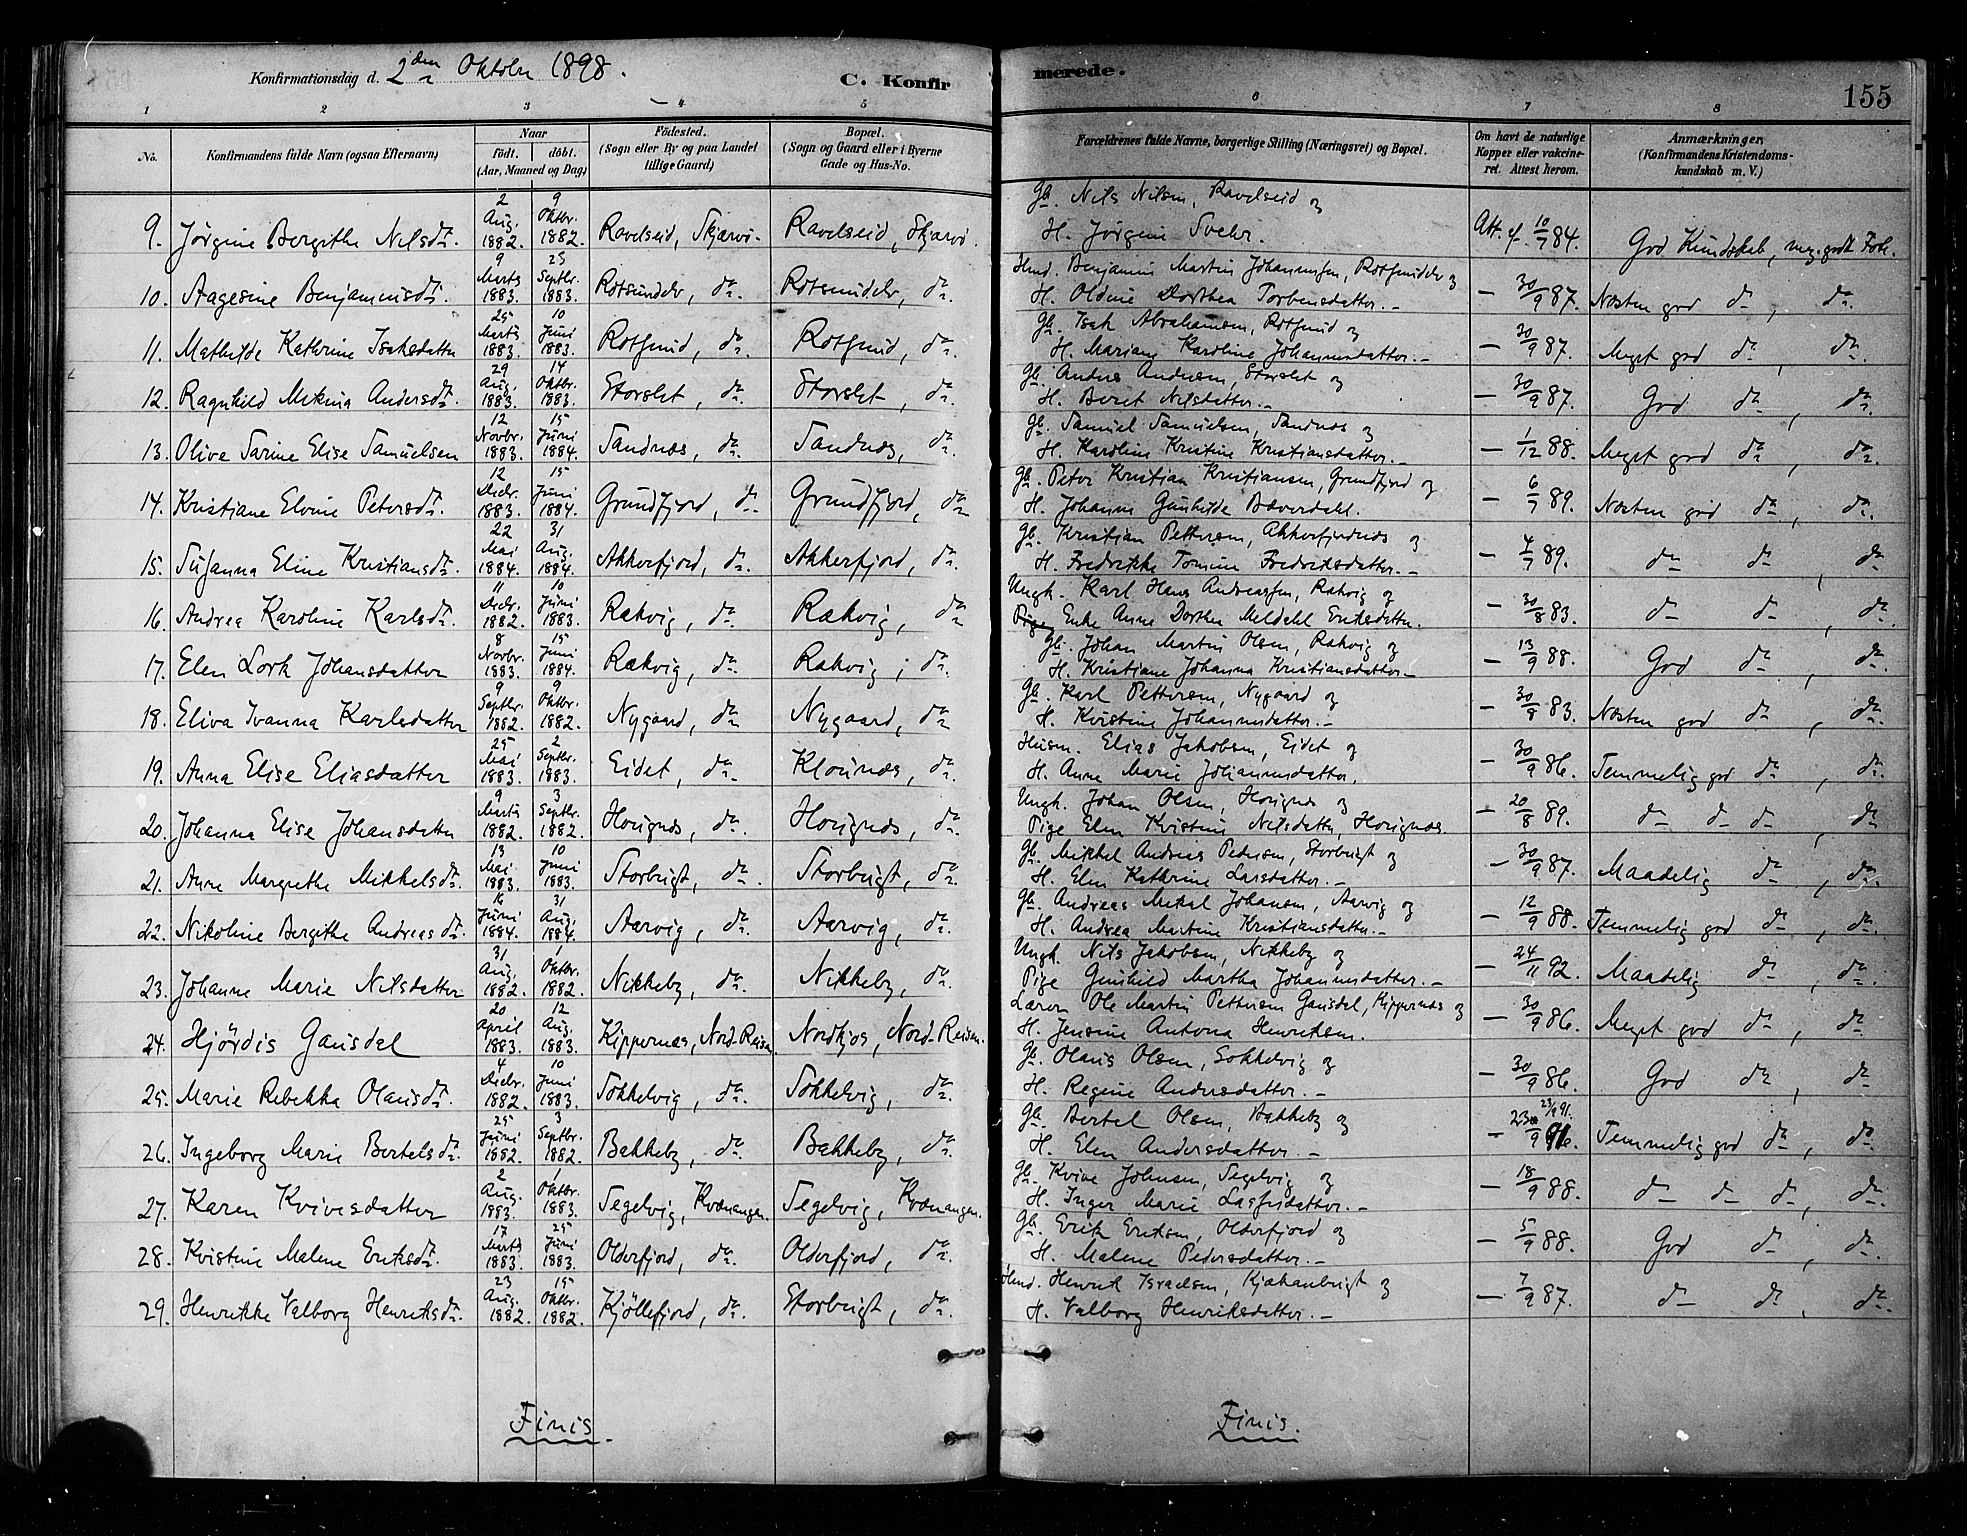 Konfirmationsdag d. 2den Oktober 1898.
C. Konfirmerede.
155
1 2 3 4 5 6 7 8
No. Konfirmandens fulde Navn (ogsaa Efternavn) Naar født. døbt. (Aar, Maaned og Dag) Fødested. (Sogn eller By og paa Landet tillige Gaard) Bopæl. (Sogn og Gaard eller i Byerne Gade og Hus-No. Forældrenes fulde Navne, borgerlige Stilling (Næringsvei) og Bopæl. Om havt de naturlige Kopper eller vakcineret. Attest herom. Anmærkninger, (Konfirmandens Kristendomskundskab m. V.)
9. Jørgine Bergithe Nilsdtr. 2 Aug. 1882. 9 Oktbr. 1882. Ravelseid, Skjærvø. Ravelseid, Skjærvø. Gb. Nils Nilsen, Ravelseid og
H. Jørgine Soehr. Att. af 10/7 84. God Kundskab, meg. godt Forh.
10. Aagesine Benjaminsdtr. 9 Marts 1883. 23 Septbr. 1883. Rotsundelv, do. Rotsundelv, do. Indr. Benjamin Martin Johannessen, Rotsundelv og
H. Oldine Dorthea Torbensdatter. — 30/9 87. Næsten god do, do.
11. Mathilde Kathrine Isaksdatter 25 Marts 1883. 10 Juni 1883. Rotsund, do. Rotsund, do. Gb. Isak Abrahamsen, Rotsund og
H. Mariane Karoline Johannesdatter. — 30/9 87. Meget god do, do.
12. Ragnhild Mekina Andersdtr. 29 Aug. 1883. 14 Oktbr. 1883. Storslet, do. Storslet, do. Gb. Anders Andersen, Storslet og
H. Beret Nilsdatter. — 30/9 87. God do, do.
13. Olive Sarine Elise Samuelsen 12 Novbr. 1883. 15 Juni 1884. Sandnæs, do. Sandnæs, do. Gb. Samuel Samuelsen, Sandnæs og
H. Karoline Kristine Kristiansdatter. — 1/12 88. Meget god do, do.
14. Kristiane Elvine Petersdtr. 12 Decbr. 1883. 15 Juni 1884. Grundfjord, do. Grundfjord, do Gb. Peter Kristian Kristiansen, Grundfjord og
H. Johanna Gunhilde Bæverdahl. — 6/7 89. Næsten god do, do.
15. Susanna Eline Kristiansdtr. 22 Mai 1884. 31 Aug. 1884. Akkerfjord, do. Akkerfjord, do. Gb. Kristian Pettersen, Akkerfjordnæs og
H. Fredrikke Tomine Fredriksdatter. — 4/7 89. do do, do
16. Andrea Karoline Karlsdtr. 11 Decbr. 1882. 10 Juni 1883. Rakvig, do. Rakvig, do Ungk. Karl Hans Andreassen, Rakvig og
Pige Enke Anne Dorthea Meldahl Eriksdatter. — 30/8 83. do do, do
17. Elen Lork Johansdatter 8 Novbr. 1883. 15 Juni 1884. Rakvig, do. Rakvig, do. Gb. Johan Martin Olsen, Rakvig og
H. Kristiane Johanna Kristiansdatter. — 13/9 88. God do, do.
18. Eliva Ivanna Karlsdatter 9 Septbr. 1882. 9 Oktbr. 1882. Nygaard, do Nygaard, do Gb. Karl Pettersen, Nygaard og
H. Kristine Johannesdatter. — 30/9 83. Næsten god do, do.
19. Anna Elise Eliasdatter 25 Mai 1883. 2 Septbr. 1883. Eidet, do. Klounæs, do. Husm. Elias Jakobsen, Eidet og
H. Anne Marie Johannesdatter. — 30/9 86. Temmelig god do, do.
20. Johanna Elise Johansdatter 9 Marts 1882. 3 Septbr. 1882. Horignæs, do. Horignæs, do. Ungk. Johan Olsen, Horignæs og
Pige Elen Kristine Nilsdatter, Horignæs. — 20/8 89. do do do, do
21. Anne Margrethe Mikkelsdtr. 13 Mai 1883. 10 Juni 1883. Storbugt, do. Storbugt, do. Gb. Mikkel Andreas Pedersen, Storbugt og
H. Elen Kathrine Larsdatter. — 30/9 87. Maadelig do, do.
22. Nikoline Bergithe Andreasdtr. 16 Juni 1884. 31 Aug. 1884. Aarvig, do. Aarvig, do. Gb. Andreas Mekal Johansen, Aarvig og
H. Andrea Martine Kristiansdatter. — 12/9 88. Temmelig god do, do.
23. Johanne Marie Nilsdatter 31 Aug. 1882. 1 Oktbr. 1882. Nikkeby, do. Nikkeby, do. Ungk. Nils Jakobsen, Nikkeby og
Pige Gunhild Martha Johannesdatter. — 24/11 92. Maadelig do, do.
24. Hjördis Gausdal 20 April 1883. 12 Aug. 1883. Kippernæs, Nord-Reisen. Nordkjos, Nord-Reisen. Lærer Ole Martin Pettersen Gausdal, Kippernæs og
H. Jensine Antona Henriksen. — 30/9 86. Meget god do, do.
25. Marie Rebekka Olausdtr. 4 Decbr. 1882. 10 Juni 1883. Sokkelvig, do. Sokkelvig, do. Gb. Olaus Olsen, Sokkelvig og
H. Regine Andersdatter. — 30/9 86. God do, do
26. Ingeborg Marie Bertelsdtr. 25 Juni 1882. 3 Septbr. 1882. Bakkeby, do. Bakkeby, do. Gb. Bertel Olsen, Bakkeby og
H. Elen Andersdatter. — 23/9 91. 23/9 91. Temmelig god do, do.
27. Karen Kvivesdatter 2 Aug. 1883. 1 Oktbr. 1883. Segelvig, Kvænangen. Segelvig, Kvænangen. Gb. Kvive Johnsen, Segelvig og
H. Inger Marie Lassesdatter. — 18/9 88. do do do, do.
28. Kristine Malene Eriksdtr. 17 Marts 1883. 25 Juni 1883. Olderfjord, do. Olderfjord, do. Gb. Erik Eriksen, Olderfjord og
H. Malene Pedersdatter. — 5/9 88. God do, do.
29. Henrikke Valborg Henriksdtr. 23 Aug. 1882. 15 Oktbr. 1882. Kjöllefjord, do. Storbugt, do. Indr. Henrik Israelsen, Kjækanbugt og
H. Valborg Henriksdatter. — 7/9 87. do do, do.
Finis.
Finis.